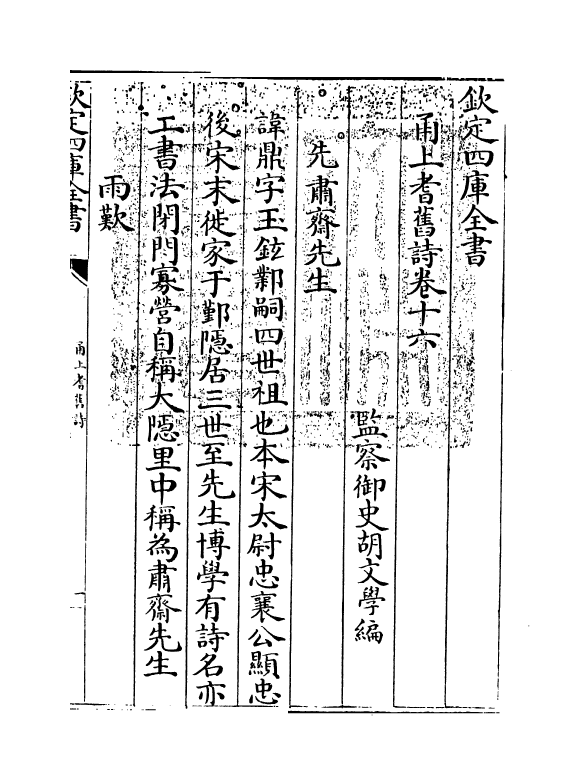 欽定四庫全書
甬上耆舊詩卷十六
監察御史胡文學編
先肅齋先生
諱鼎字玉鉉鄴嗣四世祖也本宋太尉忠襄公顯忠
後宋末徙家于鄞隱居三世至先生博學有詩名亦
工書法閉門寡營自稱大隱里中稱為肅齋先生
雨歎
欽定四庫全書
甬上耆舊詩
一